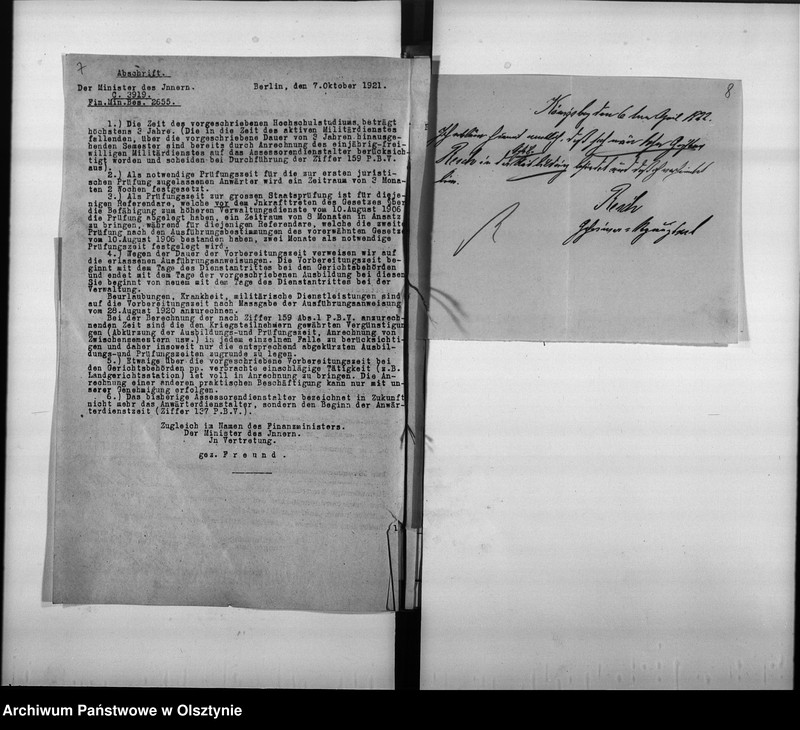 7
Abschrift.
Der Minister des Jnnern. Berlin, den 7.Oktober 1921.
C. 3919.
Fin.Min.Bes. 2655.
1.) Die Zeit des vorgeschriebenen Hochschulstudiums beträgt
höchstens 3 Jahre. (Die in die Zeit des aktiven Militärdienstes
fallenden, über die vorgeschriebene Dauer von 3 Jahren hinausge-
henden Semester sind bereits durch Anrechnung des einjährig-frei-
willigen Militärdienstes auf das Assessorendienstalter berücksich-
tigt worden und scheiden bei Durchführung der Ziffer 159 P.B.V.
aus).
2.) Als notwendige Prüfungszeit für die zur ersten juristi-
schen Prüfung zugelassenen Anwärter wird ein Zeitraum von 3 Mona-
ten 2 Wochen festgesetzt.
3.) Als Prüfungszeit zur grossen Staatsprüfung ist für dieje-
nigen Referendare, welche vor dem Jnkrafttreten des Gesetzes über
die Befähigung zum höheren Verwaltungsdienste vom 10.August 1906
die Prüfung abgelegt haben, ein Zeitraum von 8 Monaten in Ansatz
zu bringen, während für diejenigen Referendare, welche die zweite
Prüfung nach den Ausführungsbestimmungen des vorerwähnten Gesetzes
vom 10.August 1906 bestanden haben, zwei Monate als notwendige
Prüfungszeit festgelegt wird.
4.) Wegen der Dauer der Vorbereitungszeit verweisen wir auf
die erlassenen Ausführungsanweisungen. Die Vorbereitungszeit be-
ginnt mit dem Tage des Dienstantrittes bei den Gerichtsbehörden
und endet mit dem Tage der vorgeschriebenen Ausbildung bei diesen
Sie beginnt von neuem mit dem Tage des Dienstantrittes bei der
Verwaltung.
Beurlaubungen, Krankheit, militärische Dienstleistungen sind
auf die Vorbereitungszeit nach Massgabe der Ausführungsanweisung
vom 28.August 1920 anzurechnen.
Bei der Berechnung der nach Ziffer 159 Abs.1 P.B.V. anzurech-
nenden Zeit sind die den Kriegsteilnehmern gewährten Vergünstigun-
gen (Abkürzung der Ausbildungs-und Prüfungszeit, Anrechnung von
Zwischensemestern usw.) in jedem einzelnen Falle zu berücksichti-
gen und daher insoweit nur die entsprechend abgekürzten Ausbil-
dungs-und Prüfungszeiten zugrunde zu legen.
5.) Etwaige über die vorgeschriebene Vorbereitungszeit bei
den Gerichtsbehörden pp. verbrachte einschlägige Tätigkeit (z.B.
Landgerichtsstation) ist voll in Anrechnung zu bringen. Die An-
rechnung einer anderen praktischen Beschäftigung kann nur mit un-
serer Genehmigung erfolgen.
6.) Das bisherige Assessorendienstalter bezeichnet in Zukunft
nicht mehr das Anwärterdienstalter, sondern den Beginn der Anwär-
terdienstzeit (Ziffer 137 P.B.V.).
Zugleich im Namen des Finanzministers.
Der Minister des Jnnern.
Jn Vertretung.
gez. Freund.
8
den 6 April 1922.
Archiwum Państwowe w Olsztynie